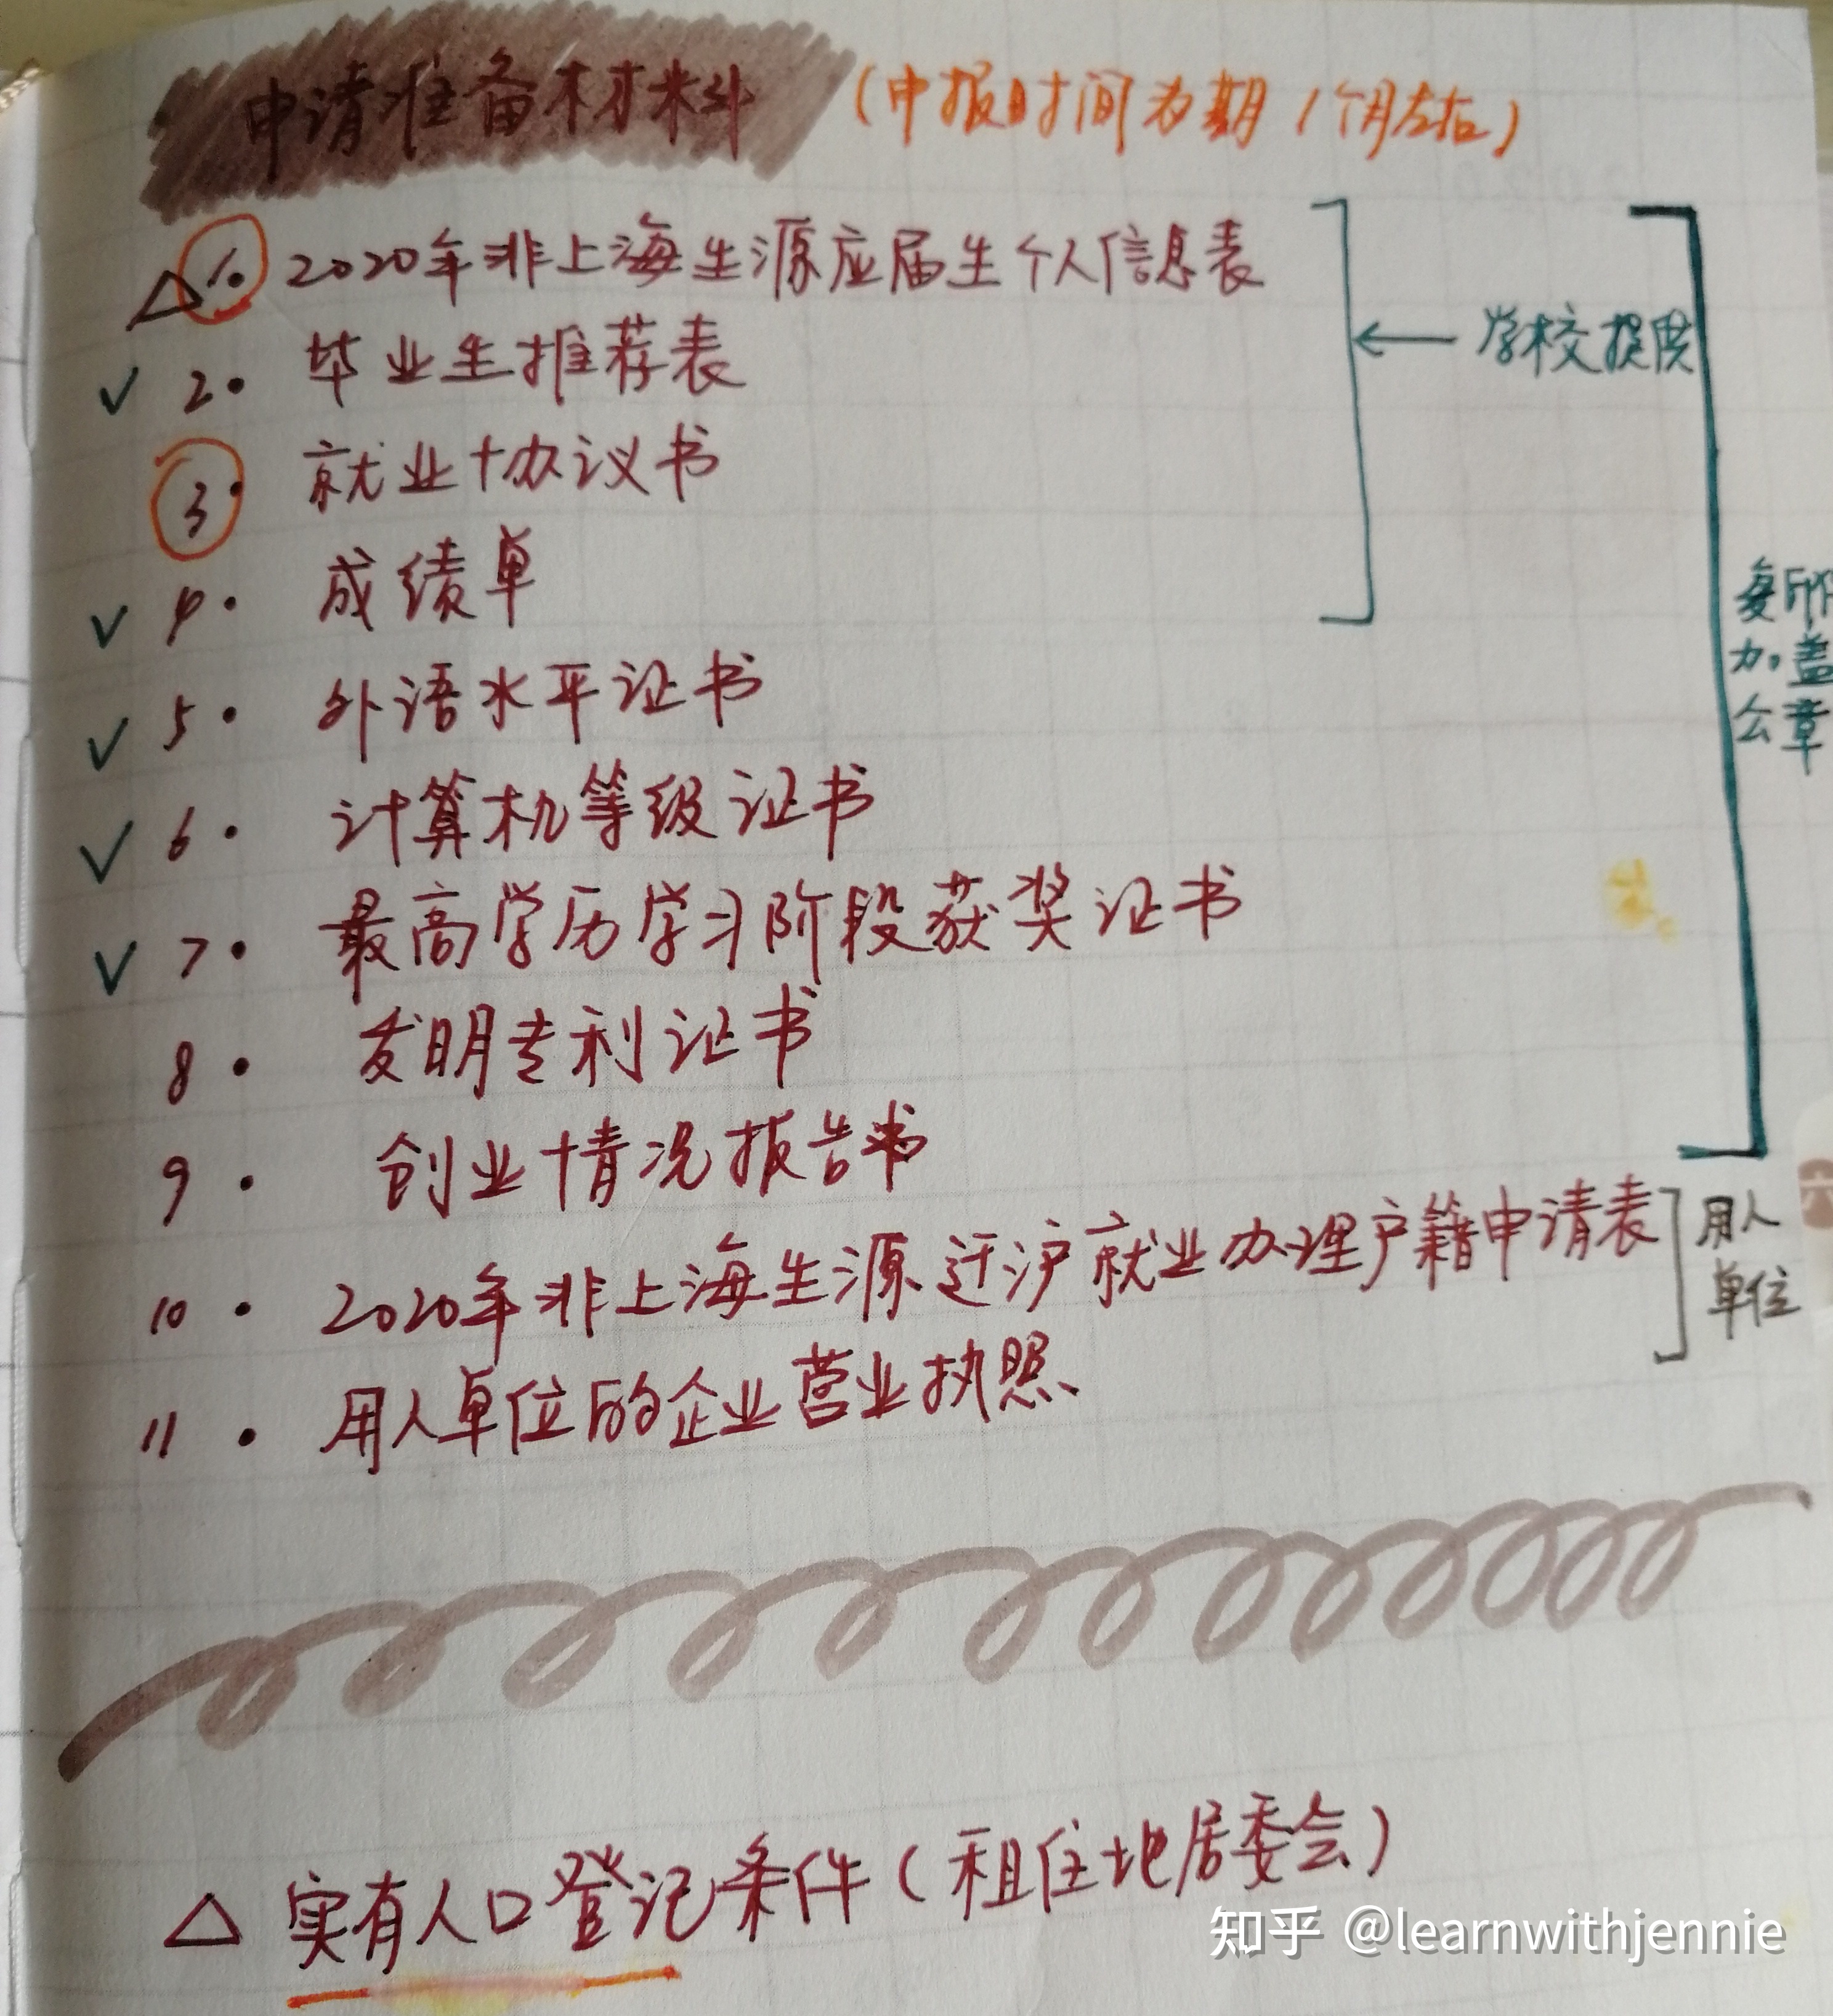 申请准备材料（申报时间为期1个月左右）
△ 1. 2020年非上海生源应届生个人信息表
✓ 2. 毕业生推荐表
学校提供
3. 就业协议书
✓ 4. 成绩单
✓ 5. 外语水平证书
复印件
加盖
公章
✓ 6. 计算机等级证书
✓ 7. 最高学历学习阶段获奖证书
8. 发明专利证书
9. 创业情况报告书
10. 2020年非上海生源迁沪就业办理户籍申请表
用人
单位
11. 用人单位的企业营业执照
△ 实有人口登记条件（租住地居委会）
知乎 @learnwithjennie